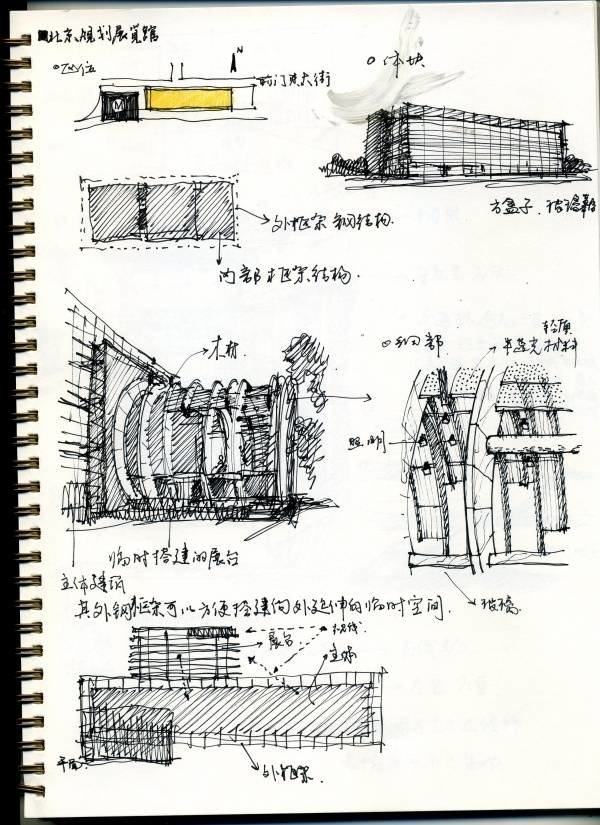 北京规划展览馆
区位
N
M
前门东大街
体块
方盒子、玻璃幕
外框架 钢结构.
内部框架结构.
木材
细部
轻质
半透光材料
照明
临时搭建的展台
立体建筑
其外钢框架可以方便搭建向外延伸的临时空间.
玻璃
视线.
展台
主体
外框架
平面